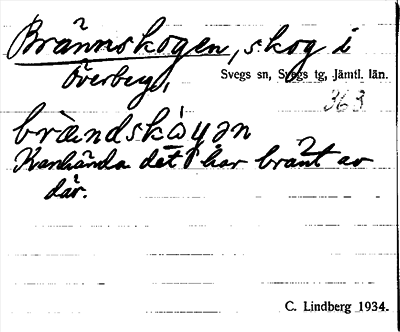 Brännskogen, skog i
Överberg,
Svegs sn, Svegs tg, Jämtl. län.
363
brændskòɣən
Kanhända det har bränt av
där.
C. Lindberg 1934.